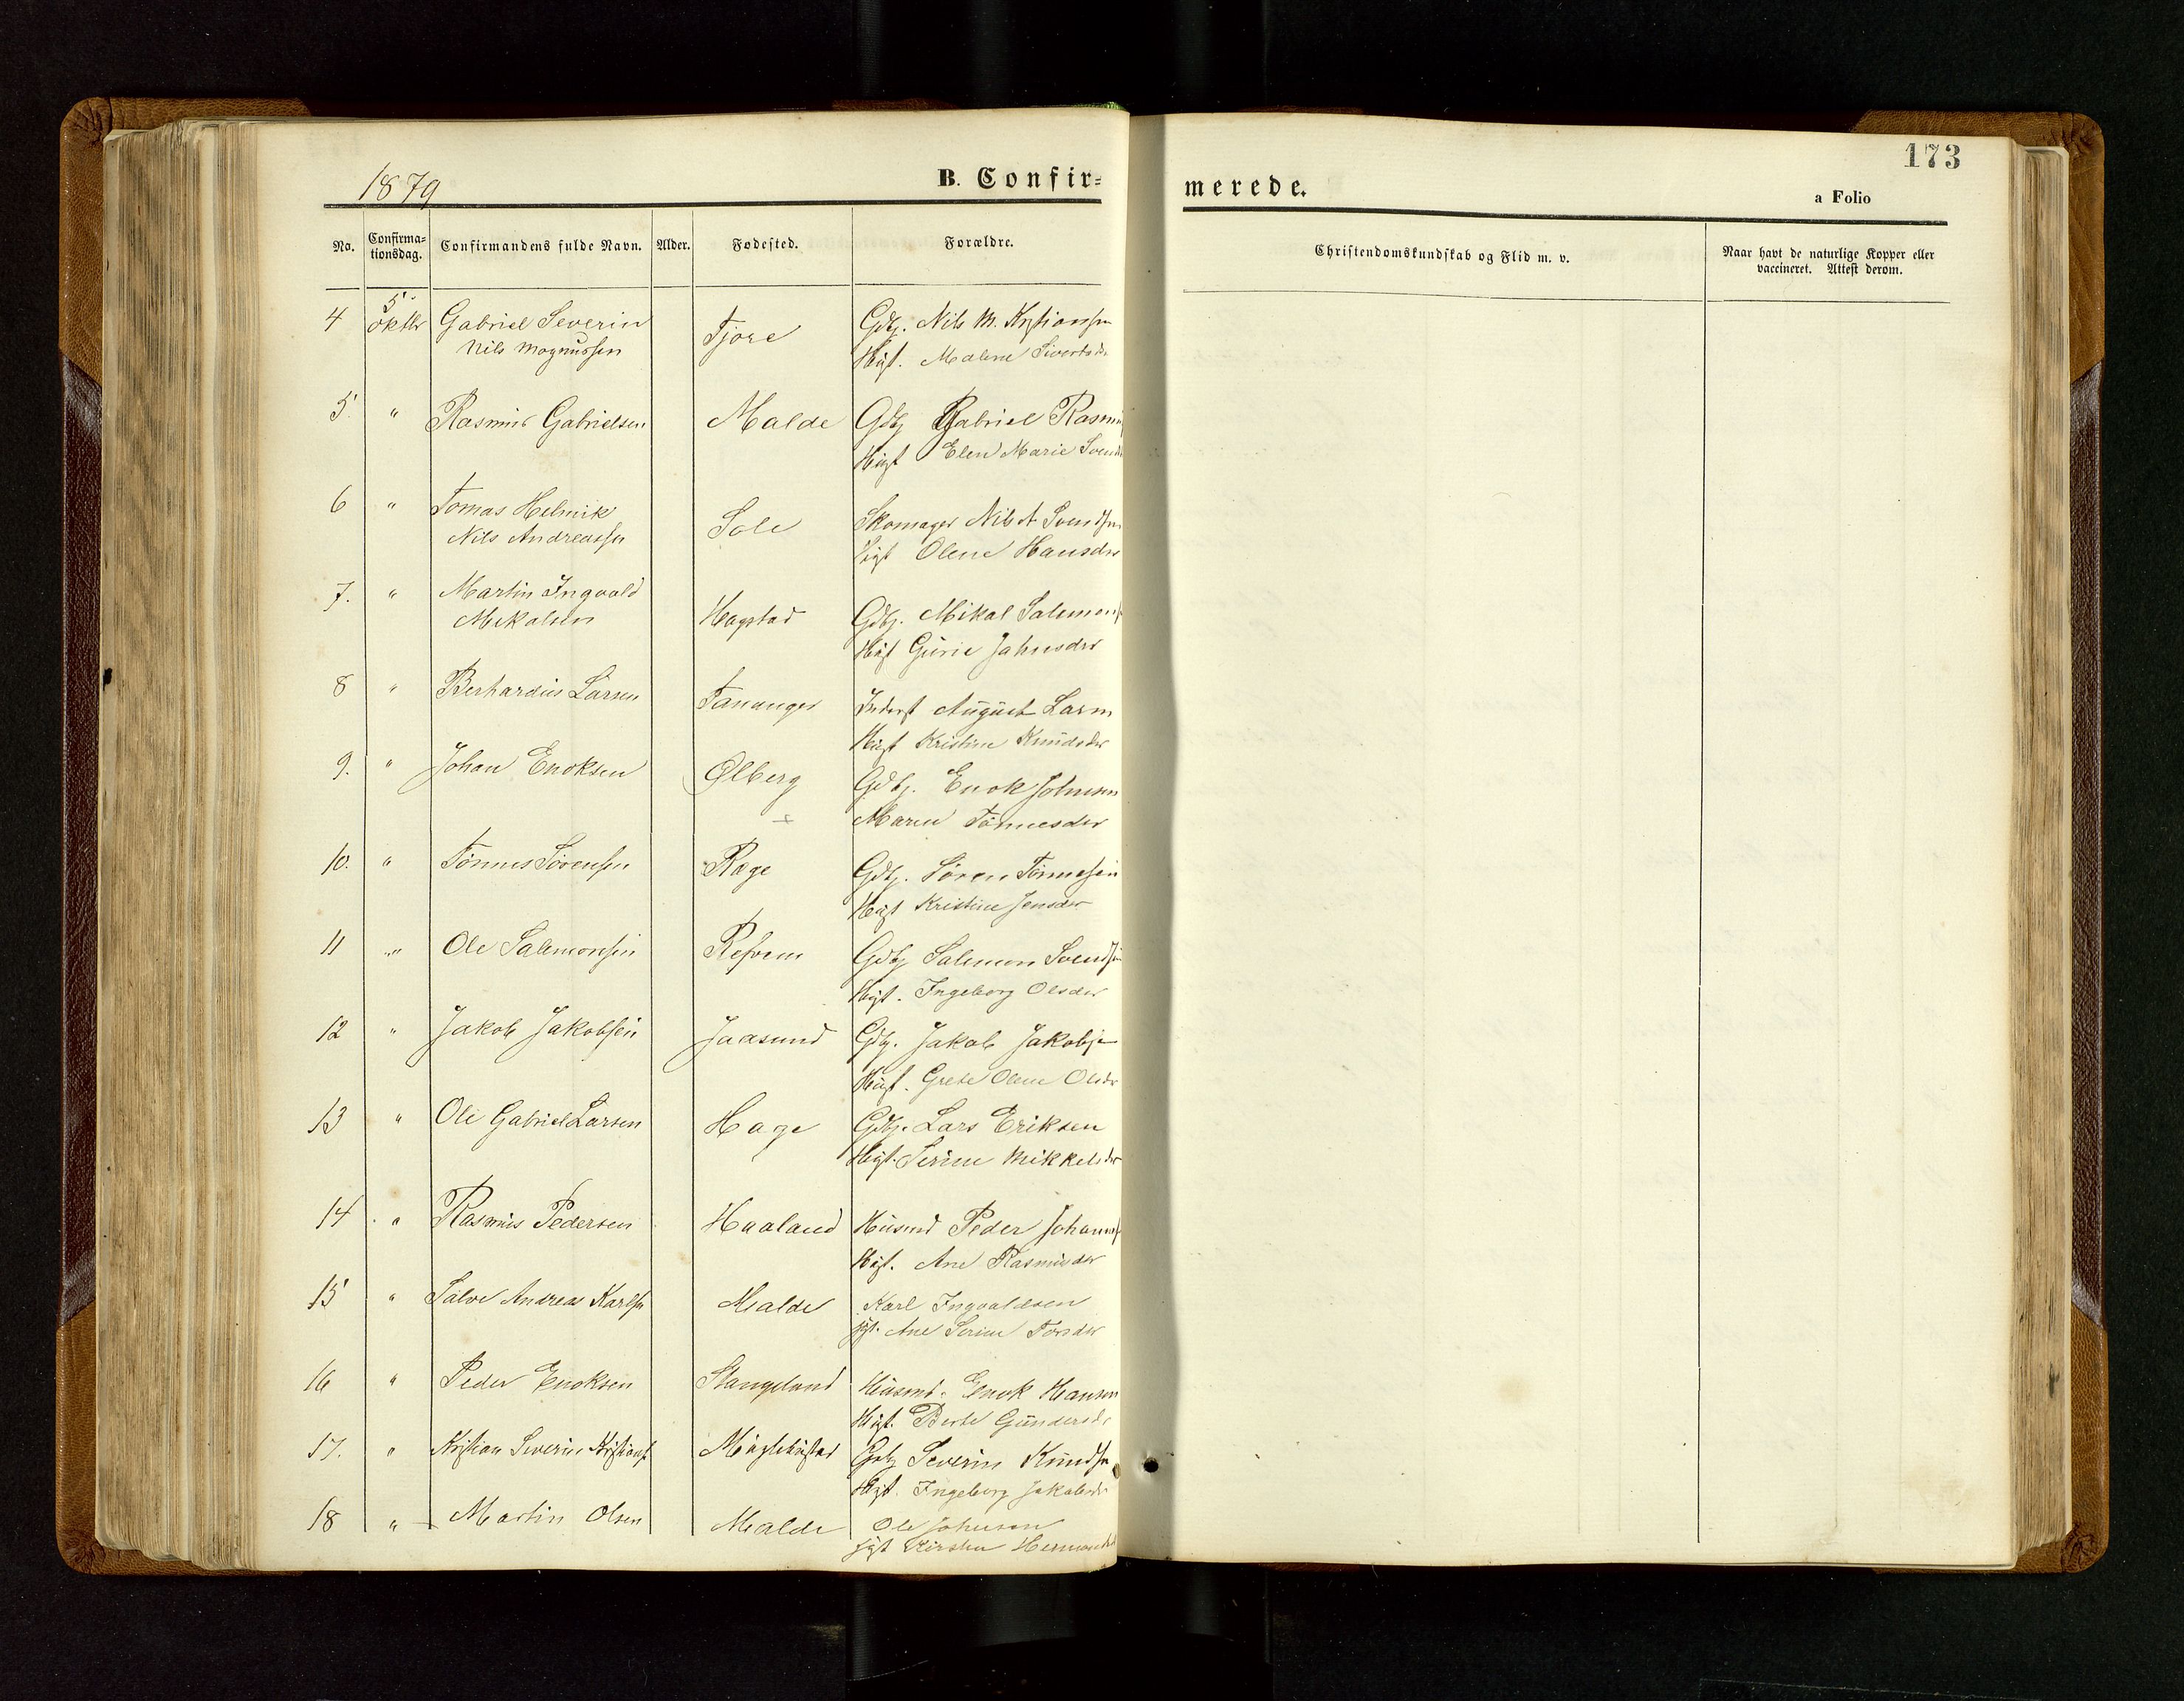 1879
B. Confir=
merede.
173
a Folio
No.
Confirma=
tionsdag.
Confirmandens fulde Navn.
Alder.
Fødested.
Forældre.
Christendomskundskab og Flid m. v.
Naar havt de naturlige Kopper eller
vaccineret. Attest derom.
4 5 oktbr Gabriel Severin Tjore Gdbj. Nils M. Kristiansen
Nils Magnussen Hügt. Malene Sivertsdr
5. " Rasmus Gabrielsen Malde Gdbj Gabriel Rasmus
Hügt Elen Marie Svends
6 " Tomas Helmik Sole Skomager Nils A Svendsen
Nils Andreassen Hgt Olene Hansdr
7. " Martin Ingvald Hagstad Gdbj. Mikal Salemons
Mikalsen Hügt Gürie Jahnsdr
8 " Berhardus Larsen Tananger Inderst August Larsen
Hügt Kristine Knudsdr
9. " Johan Enoksen Ølberg Gdbj. Enok Johnsen
Maren Tønnesdr
10. " Tønnes Sørensen Rege Gdbj. Søren Tønnesen
Hügt Kristine Jensdr
11 " Ole Salemonsen Refsnes Gdbj Salemon Svendsen
Hügt. Ingeborg Olsdr
12 " Jakob Jakobsen Jaasund Gdbj. Jakob Jakobsen
Hügt. Grete Olene Olsdr
13 " Ole Gabriel Larsen Haga Gdbj. Lars Eriksen
Hügt. Serine Mikkelsdr
14 " Rasmus Pedersen Haaland Husmd Peder Johanns
Hügt. Ane Rasmusdr
15 " Salve Andreas Karlsen Malde Karl Ingvaldsen
Hgt. Ane Serine Torsdr
16 " Peder Enoksen Stangeland Husmd. Enok Hansen
Hügt. Berte Gundersdr
17. " Kristian Severin Kristians Gdbj Severin Knudsen
Hügt. Ingeborg Jakobsdr
18 " Martin Olsen Malde Ole Johnsen
Hgt Kirsten